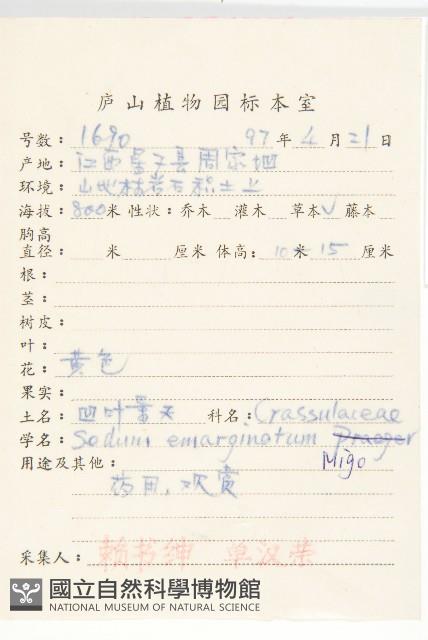 庐山植物园标本室
号数：1690 97年4月21日
产地：江西星子县周家
环境：山地林岩石积土上
海拔：800米 性状：乔木 灌木 草本✓ 藤本
胸高
直径： 米 厘米 体高：10米15厘米
根：
茎：
树皮：
叶：
花：黄色
果实：
土名：凹叶景天 科名：Crassulaceae
学名：Sedum emarginatum Praeger
Migo
用途及其他：
药用，观赏
采集人：赖书绅 单汉荣
國立自然科學博物館
NATIONAL MUSEUM OF NATURAL SCIENCE